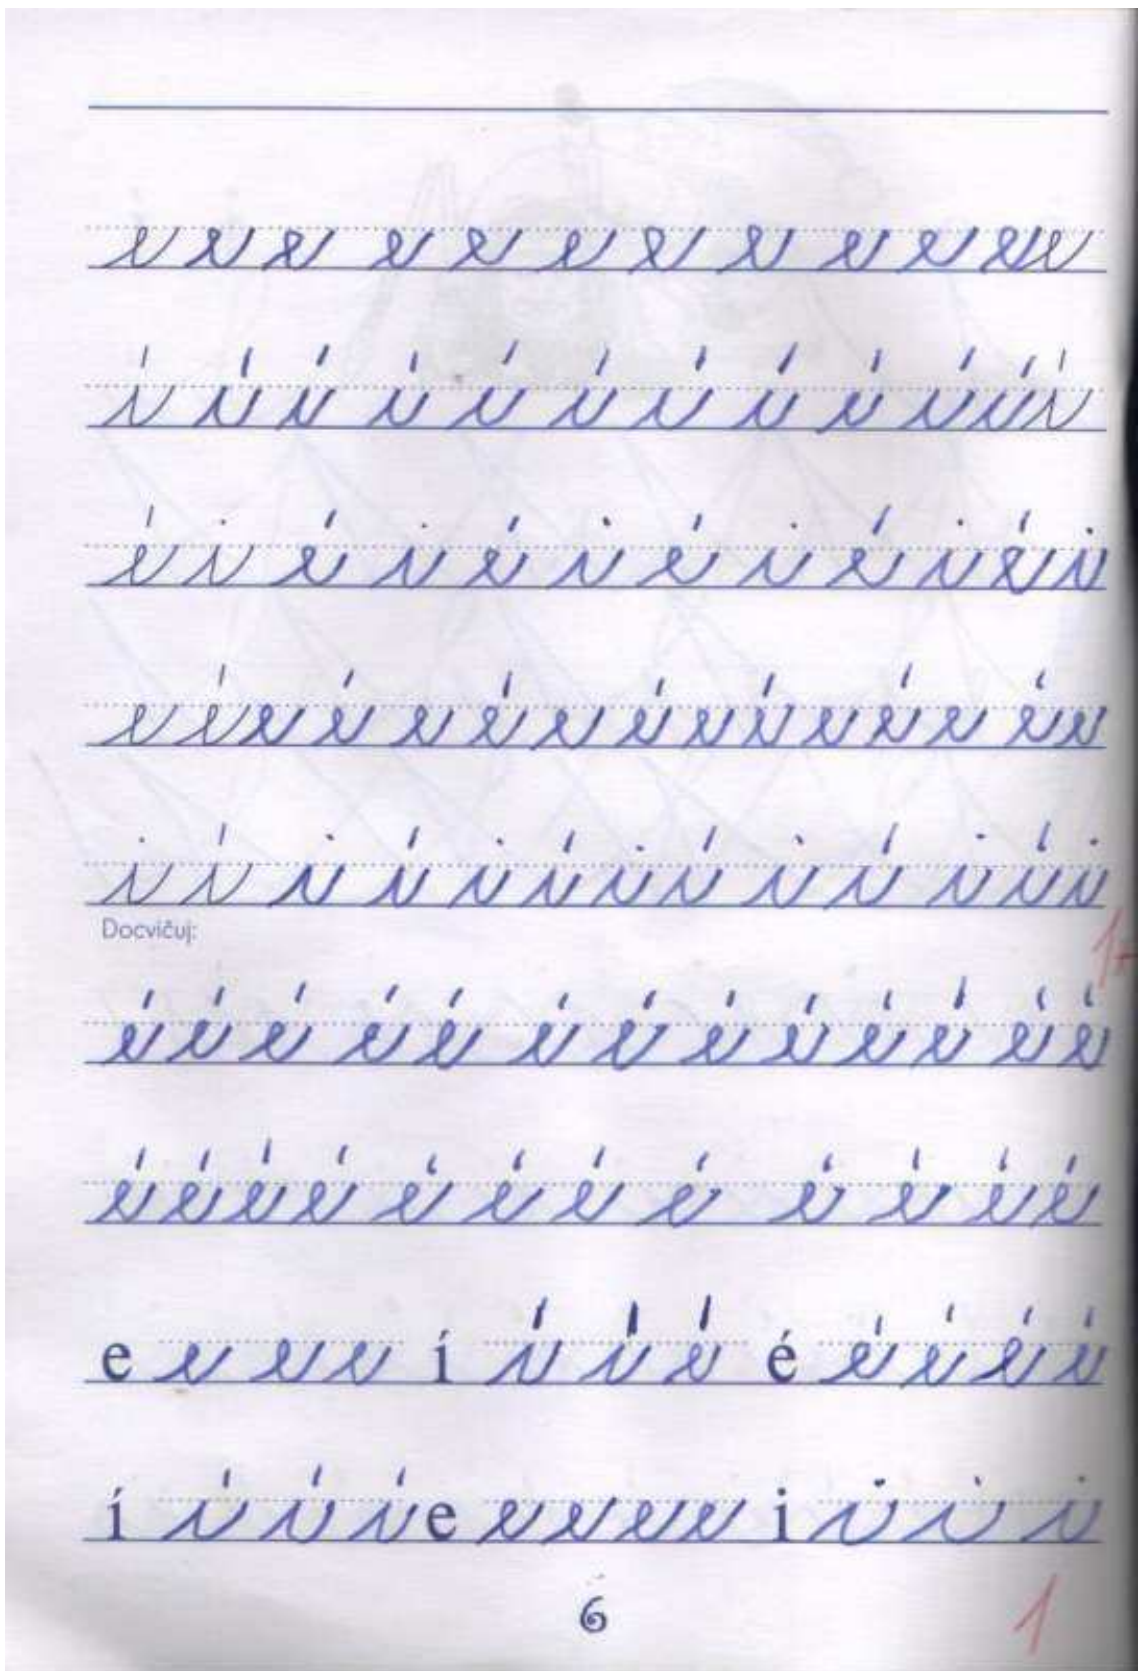 e e e e e e e e e e e e
í í í í í í í í í í í í
é i é i é i é i é i é i
e é e é e é e é e é e é e é e
i í i í i í i í i í i í i
Docvičuj:
1-
é é é é é é é é é é é é é
é é é é é é é é é é é é
e e e e í í í é é é é é é
í í í í e e e e e i i i i
6
1